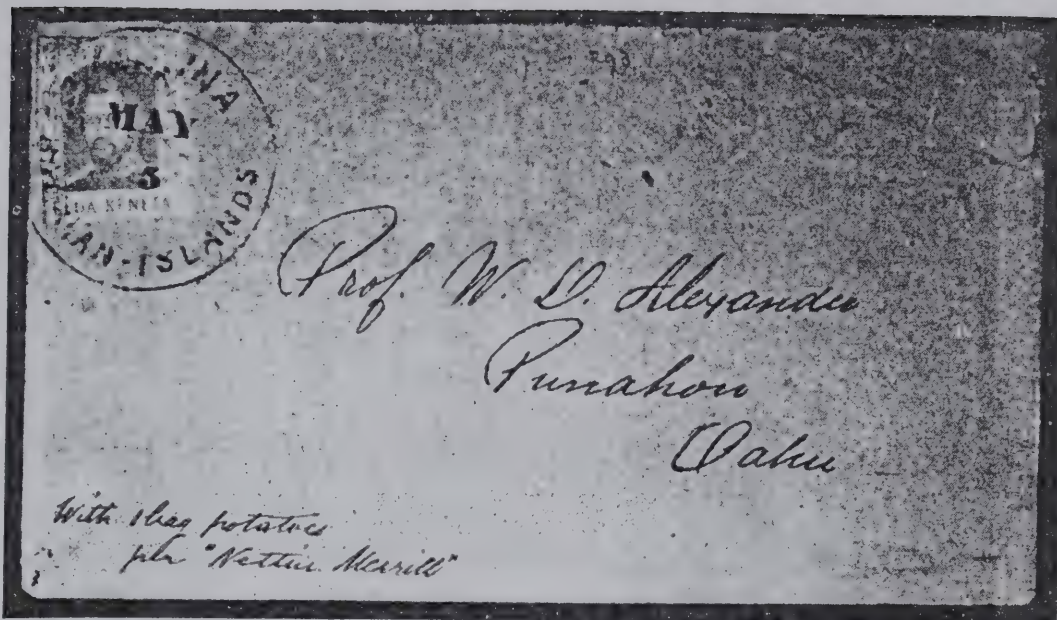 INA
MAY
5
AN-ISLANDS
Prof. W. D. Alexander
Punahou
Oahu
With 1 bag potatoes
per "Nettie Merrill"